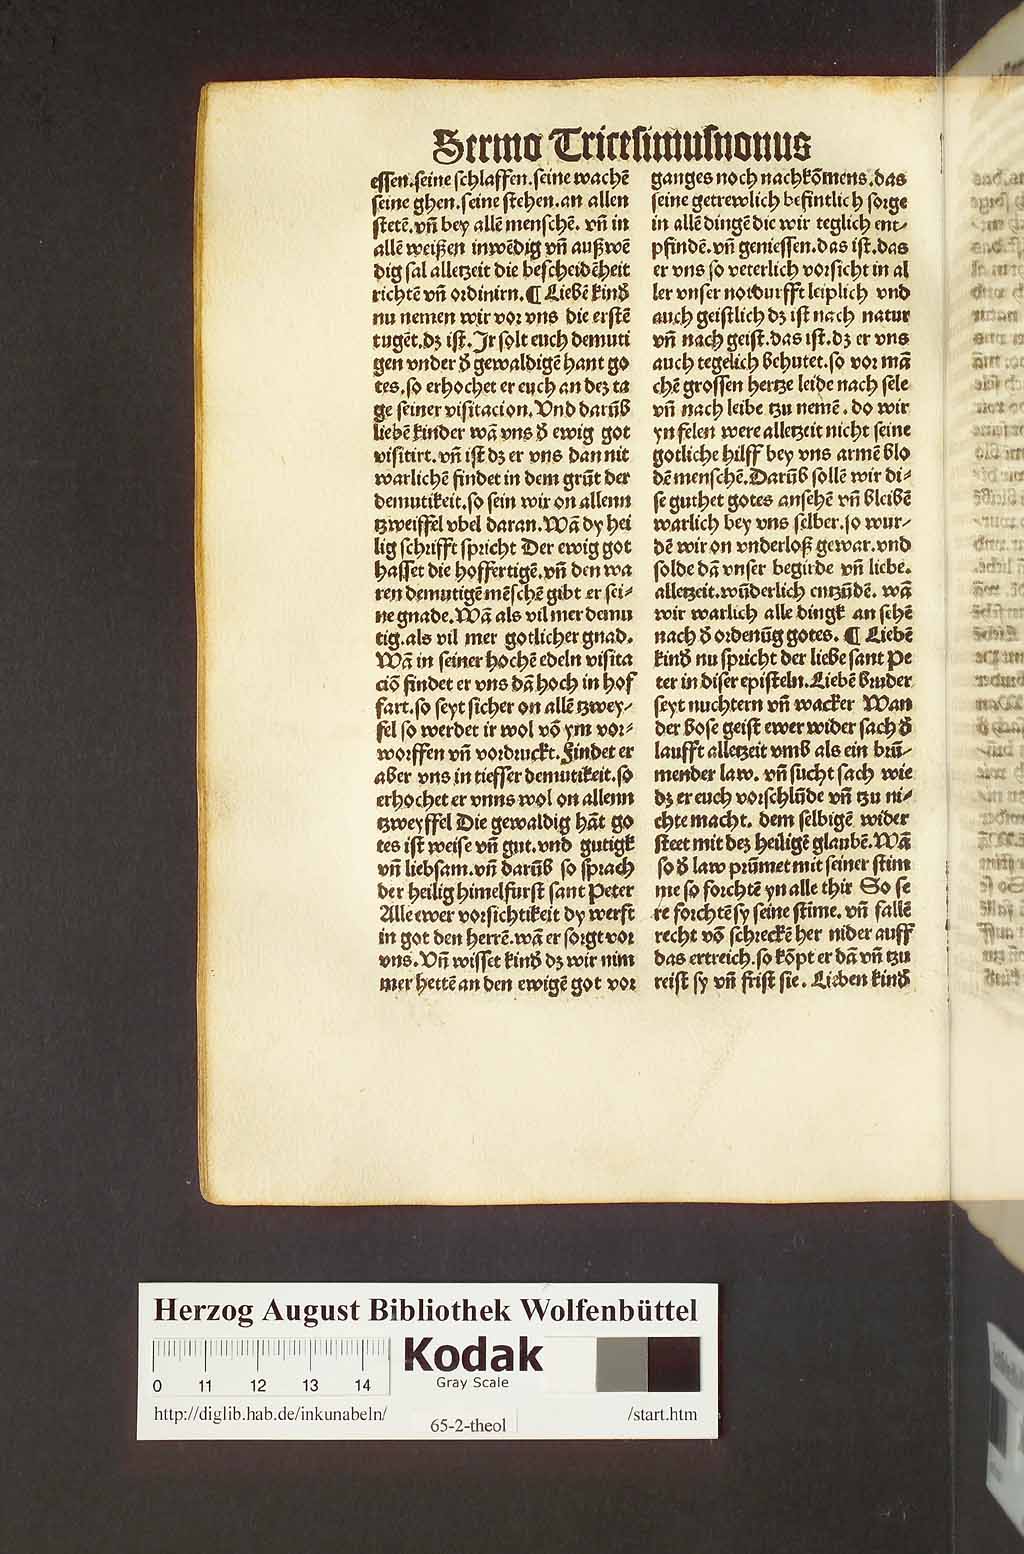 Sermo Tricesimusnonus
essen.seine schlaffen.seine wachē
seine ghen.seine stehen.an allen
stetē.vn̄ bey allē menschē. vn̄ in
allē weißen inwēdig vn̄ außwē
dig sal alletzeit die bescheidēheit
richtē vn̄ ordinirn.¶ Liebē kind̕
nu nemen wir vor vns die erstē
tugēt.dz ist. Jr solt euch demuti
gen vnder d̕ gewaldigē hant go
tes.so erhochet er euch an dez ta
ge seiner visitacion.Vnd darūb
liebē kinder wā vns d̕ ewig got
visitirt.vn̄ ist dz er vns dan nit
warlichē findet in dem grūt der
demutikeit.so sein wir on allenn
tzweiffel vbel daran.Wā dy hei
lig schrifft spricht Der ewig got
hasset die hoffertigē.vn̄ den wa
ren demutigē mēschē gibt er sei⸗
ne gnade.Wā als vil mer demu
tig.als vil mer gotlicher gnad.
Wā in seiner hochē edeln visita
ciō findet er vns dā hoch in hof
fart.so seyt sicher on allē tzwey⸗
fel so werdet ir wol vō ym vor⸗
worffen vn̄ vordruckt.Findet er
aber vns in tieffer demutikeit.so
erhochet er vnns wol on allenn
tzweyffel Die gewaldig hāt go
tes ist weise vn̄ gut.vnd gutigk
vn̄ liebsam.vn̄ darūb so sprach
der heilig himelfurst sant Peter
Alle ewer vorsichtikeit dy werft
in got den herrē.wā er sorgt vor
vns.Vn̄ wisset kind̕ dz wir nim
mer hettē an den ewigē got vor
ganges noch nachkōmens.das
seine getrewlich befintlich sorge
in allē dingē die wir teglich ent⸗
pfindē.vn̄ geniessen.das ist.das
er vns so veterlich vorsicht in al
ler vnser notdurfft leiplich vnd
auch geistlich dz ist nach natur
vn̄ nach geist.das ist.dz er vns
auch tegelich behutet.so vor mā
chē grossen hertze leide nach sele
vn̄ nach leibe tzu nemē. do wir
yn felen were alletzeit nicht seine
gotliche hilff bey vns armē blo
dē menschē.Darūb sollē wir di⸗
se guthet gotes ansehē vn̄ bleibē
warlich bey vns selber.so wur⸗
dē wir on vnderloß gewar.vnd
solde dā vnser begirde vn̄ liebe.
alletzeit.wūderlich entzūdē. wā
wir warlich alle dingk an sehē
nach d̕ ordenūg gotes. ¶ Liebē
kind̕ nu spricht der liebe sant Pe
ter in diser episteln.Liebē bruder
seyt nuchtern vn̄ wacker Wan
der bose geist ewer wider sach d̕
laufft alletzeit vmb als ein brū⸗
mender law. vn̄ sucht sach wie
dz er euch vorschlūde vn̄ tzu ni⸗
chte macht. dem selbigē wider
steet mit dez heiligē glaubē.Wā
so d̕ law prūmet mit seiner stim
me so forchtē yn alle thir So se
re forchtē sy seine stime. vn̄ fallē
recht vō schreckē her nider auff
das ertreich.so kōpt er dā vn̄ tzu
reist sy vn̄ frist sie. Lieben kind̕
Herzog August Bibliothek Wolfenbüttel
Kodak
Gray Scale
0 11 12 13 14
http://diglib.hab.de/inkunabeln/
65-2-theol
/start.htm